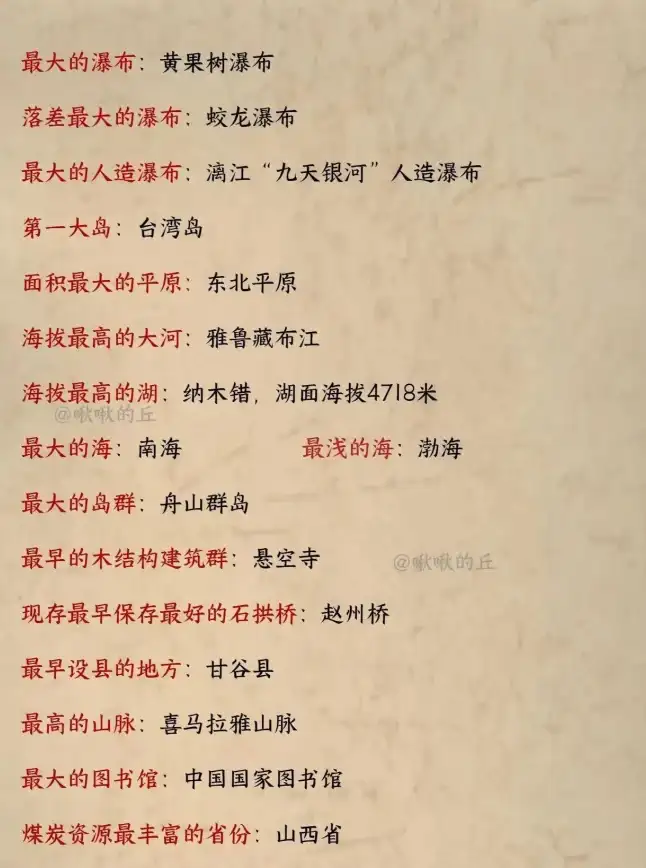 最大的瀑布：黄果树瀑布
落差最大的瀑布：蛟龙瀑布
最大的人造瀑布：漓江“九天银河”人造瀑布
第一大岛：台湾岛
面积最大的平原：东北平原
海拔最高的大河：雅鲁藏布江
海拔最高的湖：纳木错，湖面海拔4718米
@啾啾的丘
最大的海：南海 最浅的海：渤海
最大的岛群：舟山群岛
最早的木结构建筑群：悬空寺
@啾啾的丘
现存最早保存最好的石拱桥：赵州桥
最早设县的地方：甘谷县
最高的山脉：喜马拉雅山脉
最大的图书馆：中国国家图书馆
煤炭资源最丰富的省份：山西省